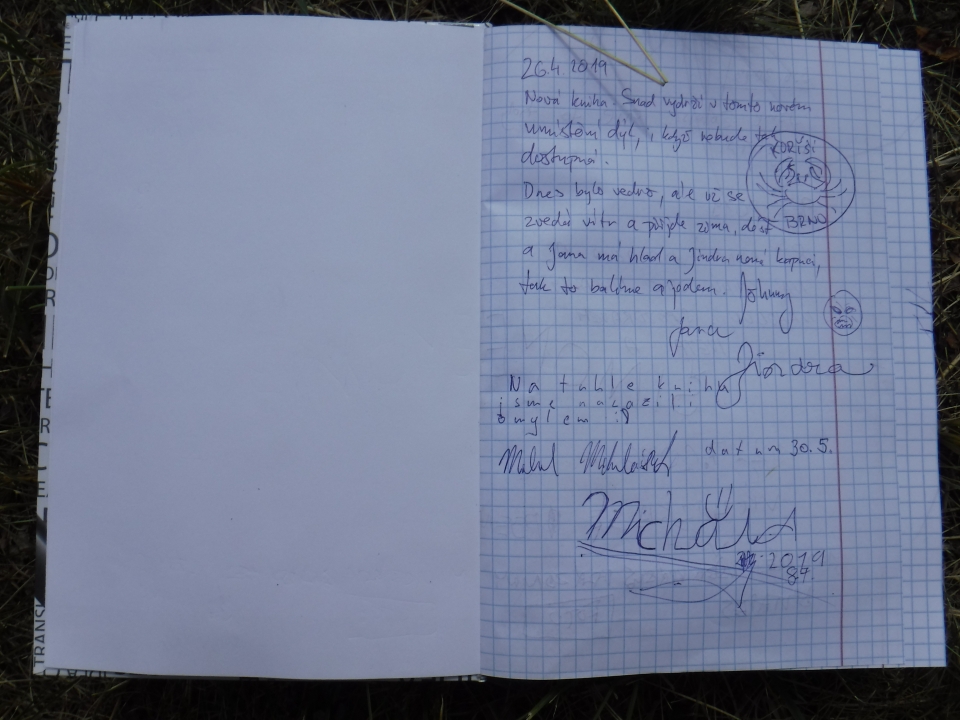 26.4. 2019
Nová kniha. Snad vydrží v tomto novém
umístění dýl, i když nebude tak
dostupná.
KORÝŠI
BRNO
Dnes bylo vedro, ale už se
zvedá vítr a přijde zima, déšť
a Jana má hlad a Jindra nemá kapuci,
tak to balíme a jedem. Johnny
Jana
Jindra
Na tuhle knihu
jsme narazili
omylem :D
datum 30.5.
Michala
2019
8.7.
TRANSK